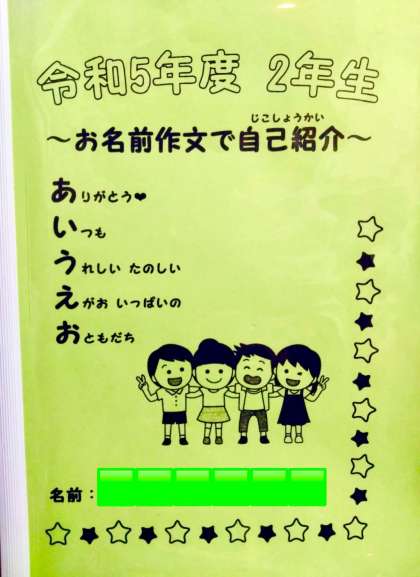 令和5年度 2年生
じこしょうかい
～お名前作文で自己紹介～
ありがとう♥
いつも
うれしい たのしい
えがお いっぱいの
おともだち
名前：